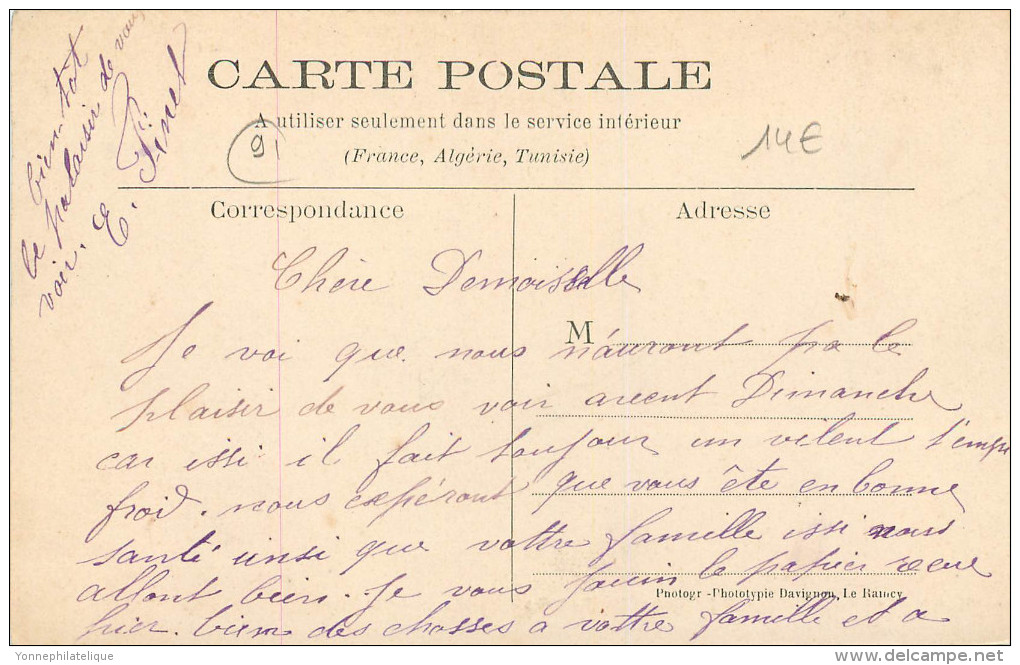 CARTE POSTALE
A utiliser seulement dans le service intérieur
(France, Algérie, Tunisie)
9
14€
Correspondance
Adresse
M
Chère Demoiselle
Je voi que nous n'auront pa le
plaisir de vous voir avent Dimanche
car issi il fait toujour un vilent temps
froid. nous expéront que vous ête en bonne
santé insi que vottre famille issi nous
allont bien. Je vous join le papier recue
hier. bien des chosses a vottre famille et a
bientot
le plaisir de vous
voir. E. Pinel
Photogr-Phototypie Davignon, Le Raincy
©Yonnephilatelique
delcampe.net